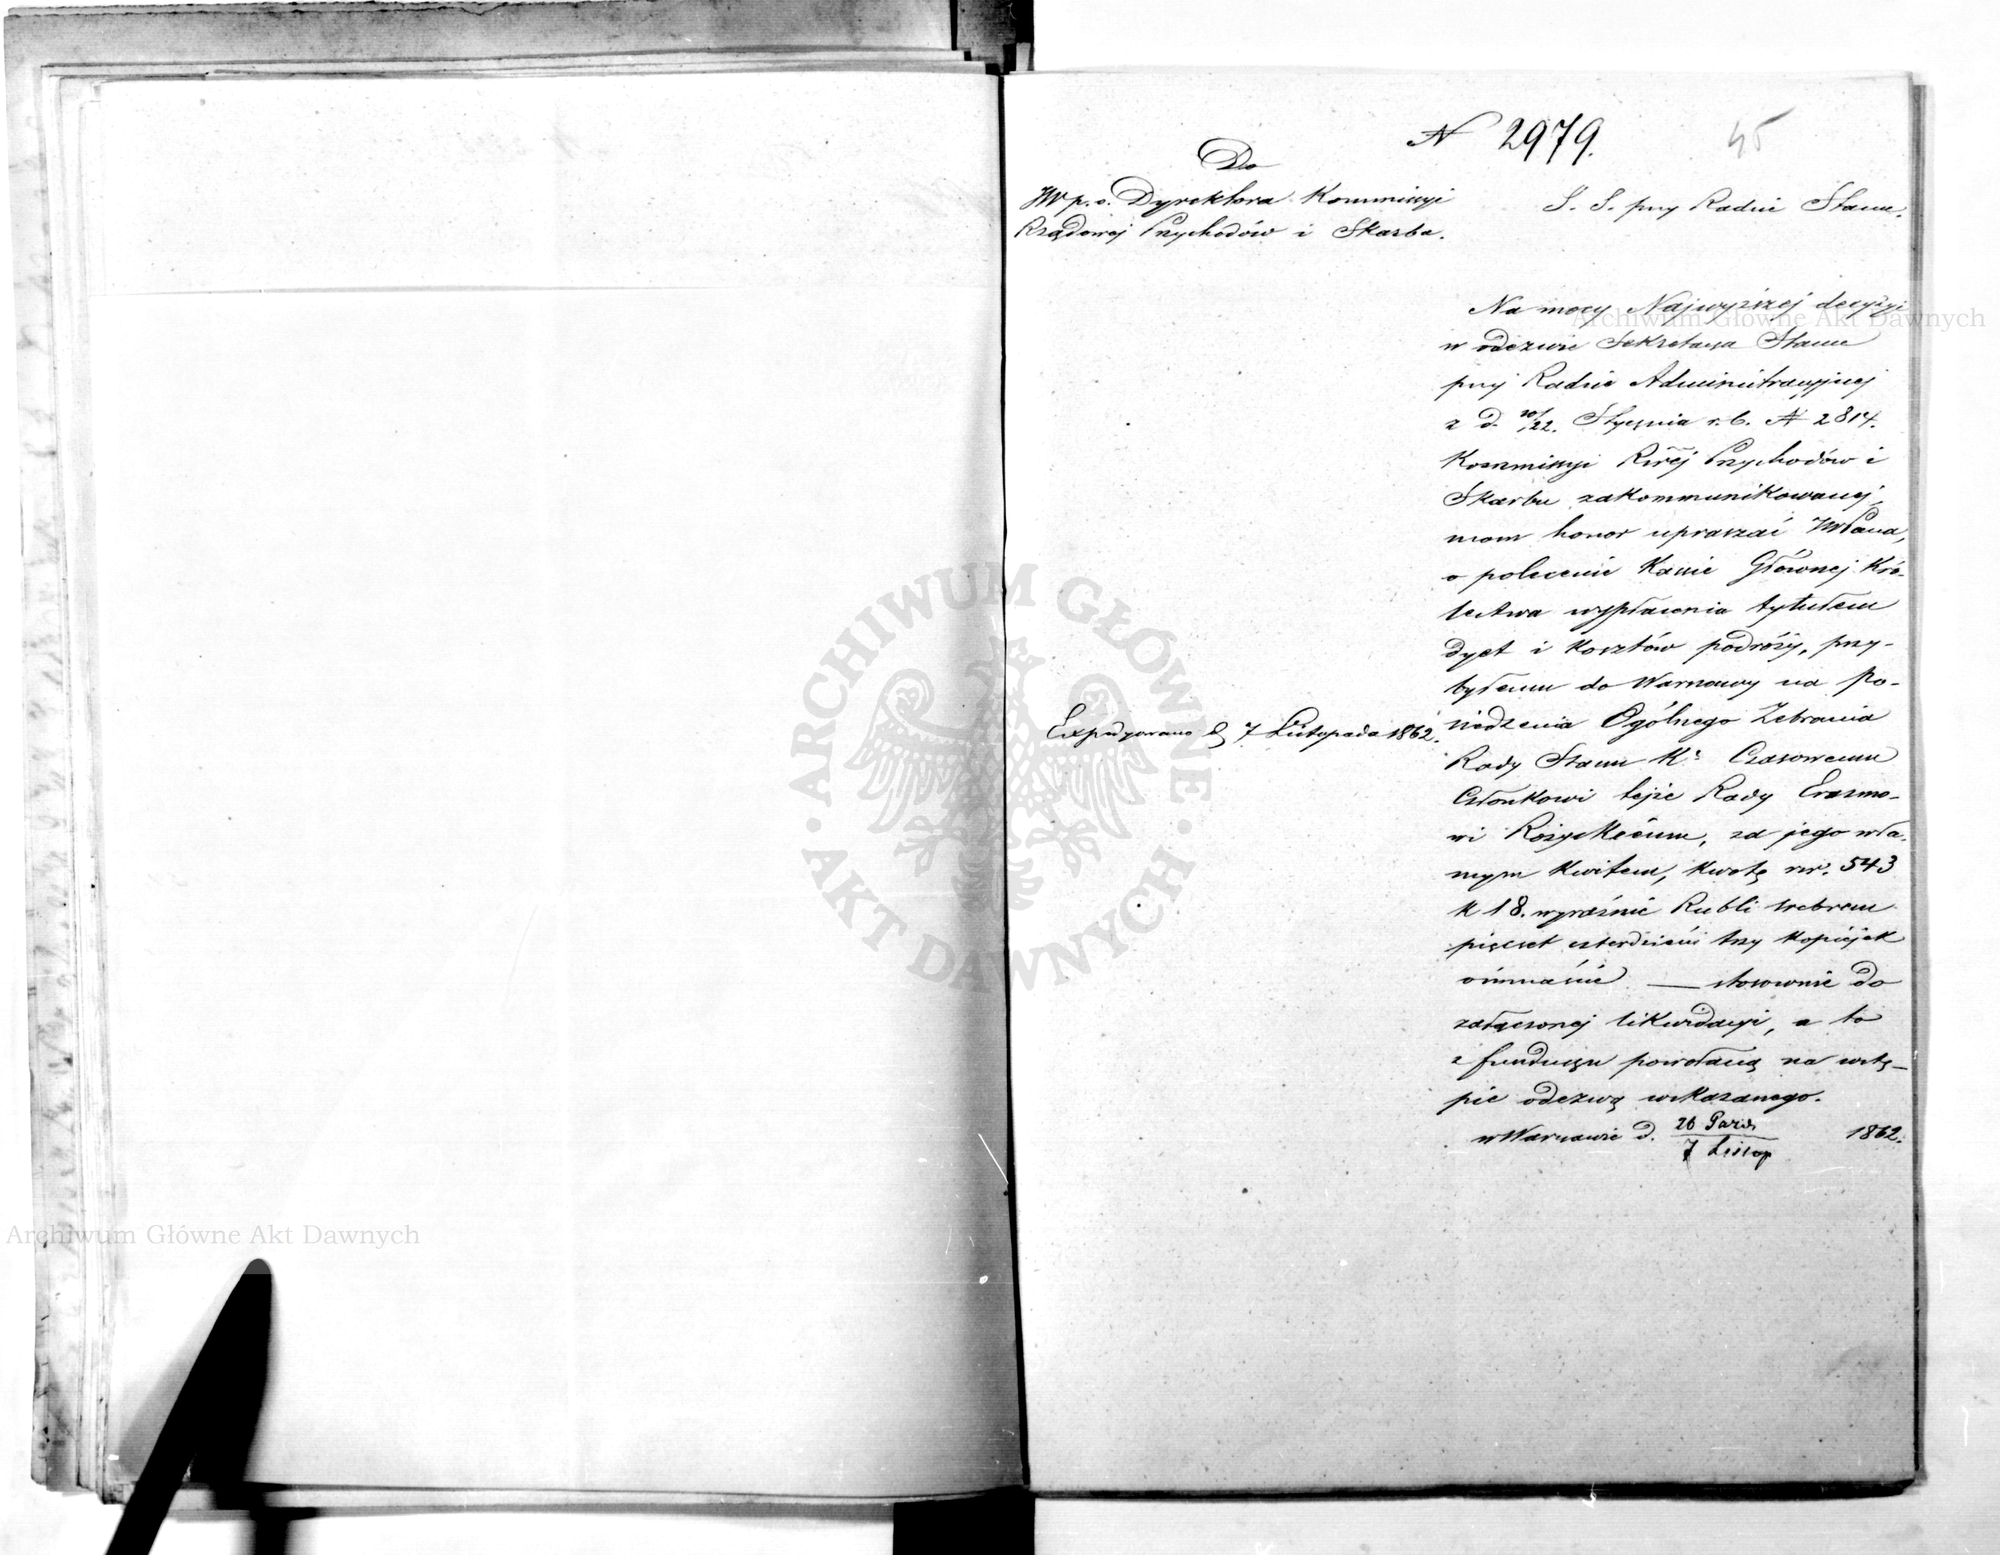 N 2979.
45
Do
JW p. o. Dyrektora Kommissyi
Rządowej Przychodów i Skarbu.
S. S. przy Radzie Stanu.
Na mocy Najwyższej decyzyi
w odezwie Sekretarza Stanu
przy Radzie Administracyjnej
z d. 10/22. Stycznia r. b. N 2814.
Kommissyi Rwéj Przychodów i
Skarbu zakommunikowanej,
mam honor upraszać JWPana,
o polecenie Kassie Głównej Kró-
lestwa wypłacenia tytułem
dyet i kosztów podróży, przy-
byłemu do Warszawy na Po-
siedzenia Ogólnego Zebrania
Rady Stanu Kr Czasowemu
Członkowi tejże Rady Erazmo-
wi Różyckiemu, za jego wła-
snym kwitem, kwotę rsr. 543
k 18. wyraźnie Rubli srebrem
pięćset czterdzieści trzy kopiejek
ośmnaście — stosownie do
załączonej likwidacyi, a to
z funduszu powołaną na wstę-
pie odezwą wskazanego.
w Warszawie d. 26 Paźdz / 7 Listop 1862.
Expedyowano d 7 Listopada 1862.
Archiwum Główne Akt Dawnych
ARCHIWUM GŁÓWNE
AKT DAWNYCH
Archiwum Główne Akt Dawnych